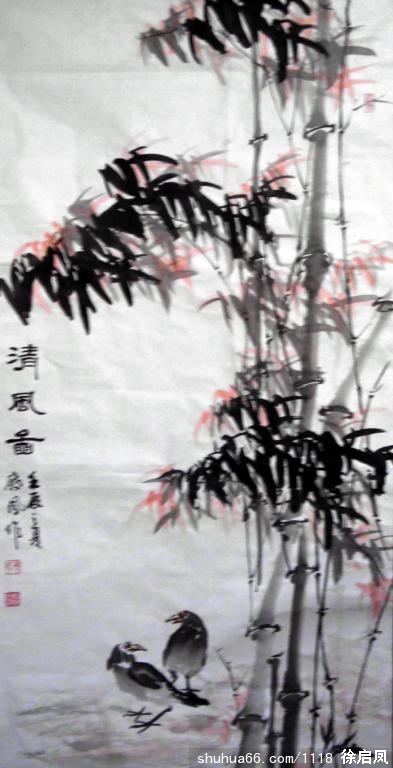 清風啚
壬辰之夏
啓鳳作
shuhua66.com/1118 徐启凤